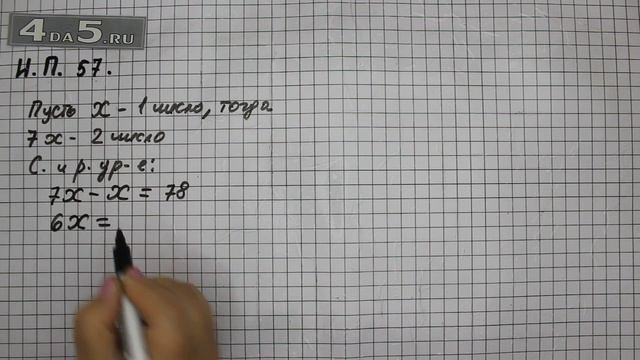 4DA5.RU
Н.П. 57.
Пусть x - 1 число, тогда
7x - 2 число
С. и р. ур-е:
7x - x = 78
6x =